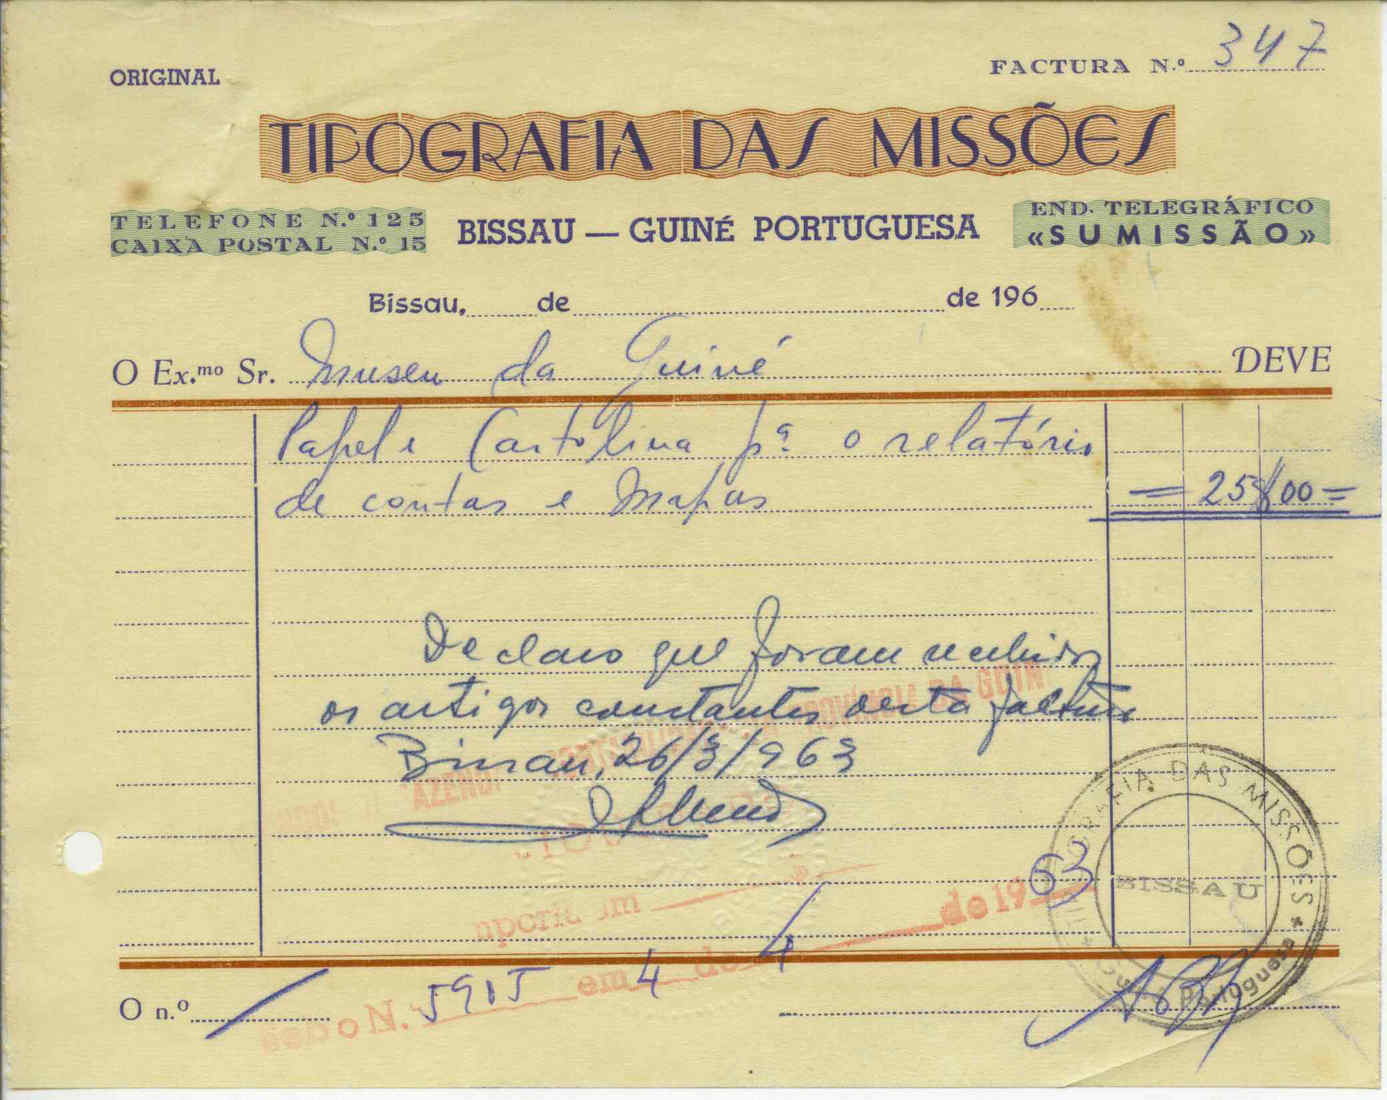 ORIGINAL
FACTURA N.º 347
TIPOGRAFIA DAS MISSÕES
TELEFONE N.º 125
CAIXA POSTAL N.º 15
BISSAU — GUINÉ PORTUGUESA
END. TELEGRÁFICO
«SUMISSÃO»
Bissau, de de 196
O Ex.mo Sr. Museu da Guiné DEVE
Papel e Cartolina pª o relatório
de contas e Mapas = 25$00 =
Declaro que foram recebidos
os artigos constantes desta factura
Bissau, 26/3/963
PROVÍNCIA DA GUIN
de 1963
TIPOGRAFIA DAS MISSÕES
BISSAU
Guiné Portuguesa
em 4 de 4
O n.º
N.º 5915